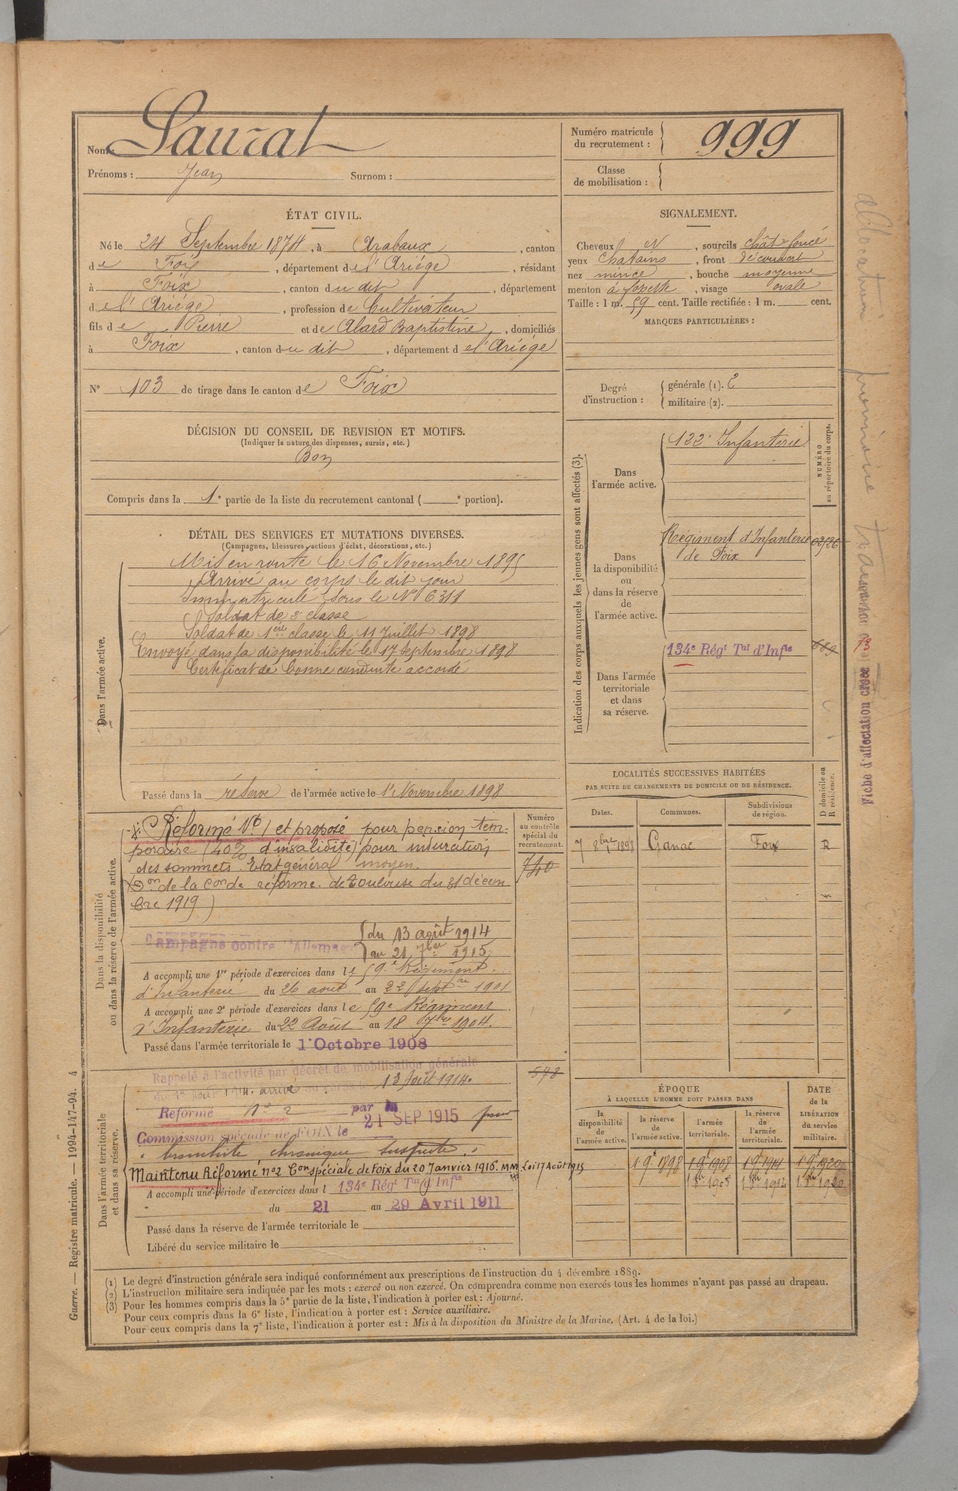 Nom : Lauzat
Prénoms : Jean Surnom :
Numéro matricule du recrutement : 999
Classe de mobilisation :
ÉTAT CIVIL.
Né le 24 Septembre 1874, à Arabaux, canton
de Foix, département de l'Ariège, résidant
à Foix, canton du dit, département
de l'Ariège, profession de Cultivateur
fils de Pierre et de Alard Baptistine, domiciliés
à Foix, canton du dit, département de l'Ariège
N° 103 de tirage dans le canton de Foix
DÉCISION DU CONSEIL DE REVISION ET MOTIFS.
(Indiquer la nature des dispenses, sursis, etc.)
Bon
Compris dans la 1e partie de la liste du recrutement cantonal ( e portion).
SIGNALEMENT.
Cheveux N, sourcils chât. foncé
yeux chatains, front découvert
nez mince, bouche moyenne
menton à fossette, visage ovale
Taille : 1 m. 59 cent. Taille rectifiée : 1 m. cent.
MARQUES PARTICULIÈRES :
Degré d'instruction :
générale (1). 2
militaire (2).
DÉTAIL DES SERVICES ET MUTATIONS DIVERSES.
(Campagnes, blessures, actions d'éclat, décorations, etc.)
Dans l'armée active.
Mis en route le 16 Novembre 1895
Arrivé au corps le dit jour
Immatriculé sous le N° 6311
Soldat de 2e classe
Soldat de 1ere classe le 11 Juillet 1898
Envoyé dans la disponibilité le 17 Septembre 1898
Certificat de bonne conduite accordé
Passé dans la réserve de l'armée active le 1er Novembre 1898
Indication des corps auxquels les jeunes gens sont affectés (3).
NUMÉRO au répertoire du corps.
Dans l'armée active.
122e Infanterie
Dans la disponibilité ou dans la réserve de l'armée active.
Régiment d'Infanterie
de Foix
Dans l'armée territoriale et dans sa réserve.
134e Régt Tal d'Infie
Dans la disponibilité ou dans la réserve de l'armée active.
Numéro au contrôle spécial du recrutement.
740
Réformé N° 1 et proposé pour pension tem-
poraire (40% d'insalidité) pour induration
des sommets. Etat général moyen.
(Don de la Con de réforme de Toulouse du 31 décem-
bre 1919)
Campagne contre l'Allemagne
du 13 août 1914
au 21 7bre 1915
A accompli une 1re période d'exercices dans le 59e Régiment
d'Infanterie du 26 août au 22 Septbre 1901
A accompli une 2e période d'exercices dans le 59e Régiment
d'Infanterie du 22 Août au 18 7bre 1904.
Passé dans l'armée territoriale le 1er Octobre 1908
Dans l'armée territoriale et dans sa réserve.
Rappelé à l'activité par décret de mobilisation générale
13 Août 1914.
Réformé N° 2 par la
Commission spéciale de FOIX le 21 SEP 1915 pour
"bronchite chronique suspecte".
Maintenu Réformé n°2 Con spéciale de Foix du 20 Janvier 1916. Loi 17 Août 1915
A accompli une période d'exercices dans l 134e Régt Tal d'Infie
du 21 au 29 Avril 1911
Passé dans la réserve de l'armée territoriale le
Libéré du service militaire le
LOCALITÉS SUCCESSIVES HABITÉES
PAR SUITE DE CHANGEMENTS DE DOMICILE OU DE RÉSIDENCE.
Dates. Communes. Subdivisions de région. D domicile ou R résidence.
7 8bre 1898 Ganac Foix R
ÉPOQUE
À LAQUELLE L'HOMME DOIT PASSER DANS
la disponibilité de l'armée active. la réserve de l'armée active. l'armée territoriale. la réserve de l'armée territoriale.
DATE de la LIBÉRATION du service militaire.
Guerre. — Registre matricule. — 1994-147-94. 4
Fiche d'affectation créée
(1) Le degré d'instruction générale sera indiqué conformément aux prescriptions de l'instruction du 4 décembre 1889.
(2) L'instruction militaire sera indiquée par les mots : exercé ou non exercé. On comprendra comme non exercés tous les hommes n'ayant pas passé au drapeau.
(3) Pour les hommes compris dans la 5e partie de la liste, l'indication à porter est : Ajourné.
Pour ceux compris dans la 6e liste, l'indication à porter est : Service auxiliaire.
Pour ceux compris dans la 7e liste, l'indication à porter est : Mis à la disposition du Ministre de la Marine. (Art. 4 de la loi.)